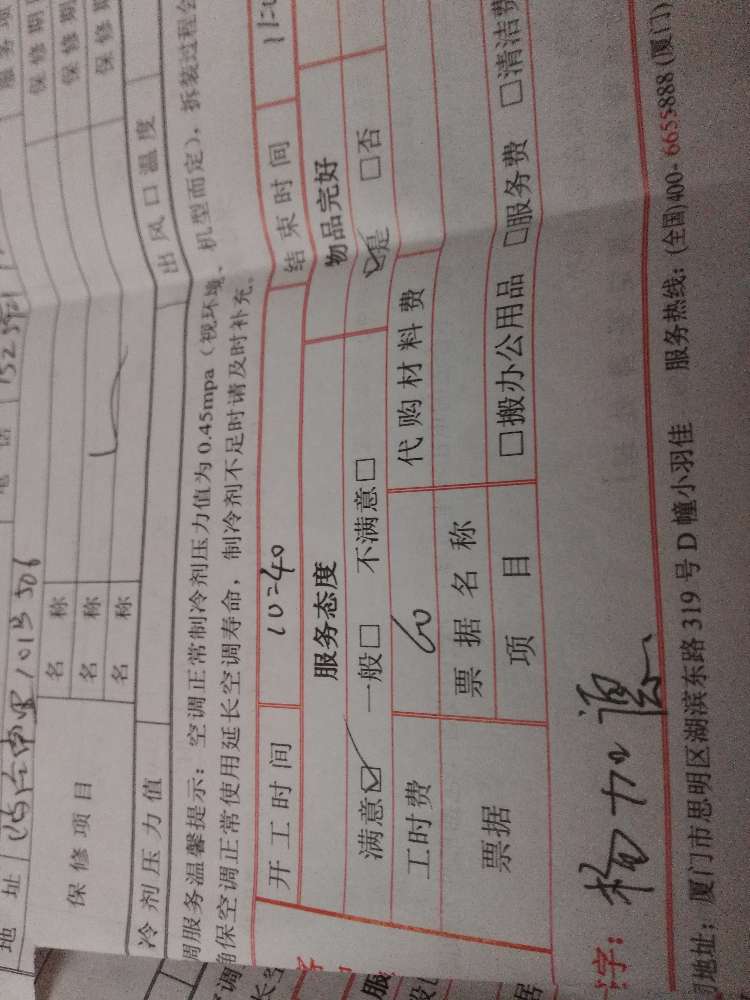 地 址 101B 506
保修项目
名 称 保修期
名 称 保修期
名 称 保修期
冷剂压力值 出风口温度
调服务温馨提示：空调正常制冷剂压力值为0.45mpa（视环境、机型而定），拆装过程会
确保空调正常使用延长空调寿命，制冷剂不足时请及时补充。
开工时间 10:40 结束时间
服务态度 物品完好
满意☑ 一般□ 不满意□ ☑是 □否
工时费 60 代购材料费
票据 票据名称
项 目 □搬办公用品 □服务费 □清洁费
字：杨加源
地址：厦门市思明区湖滨东路319号D幢小羽佳 服务热线：(全国)400-6655888(厦门)